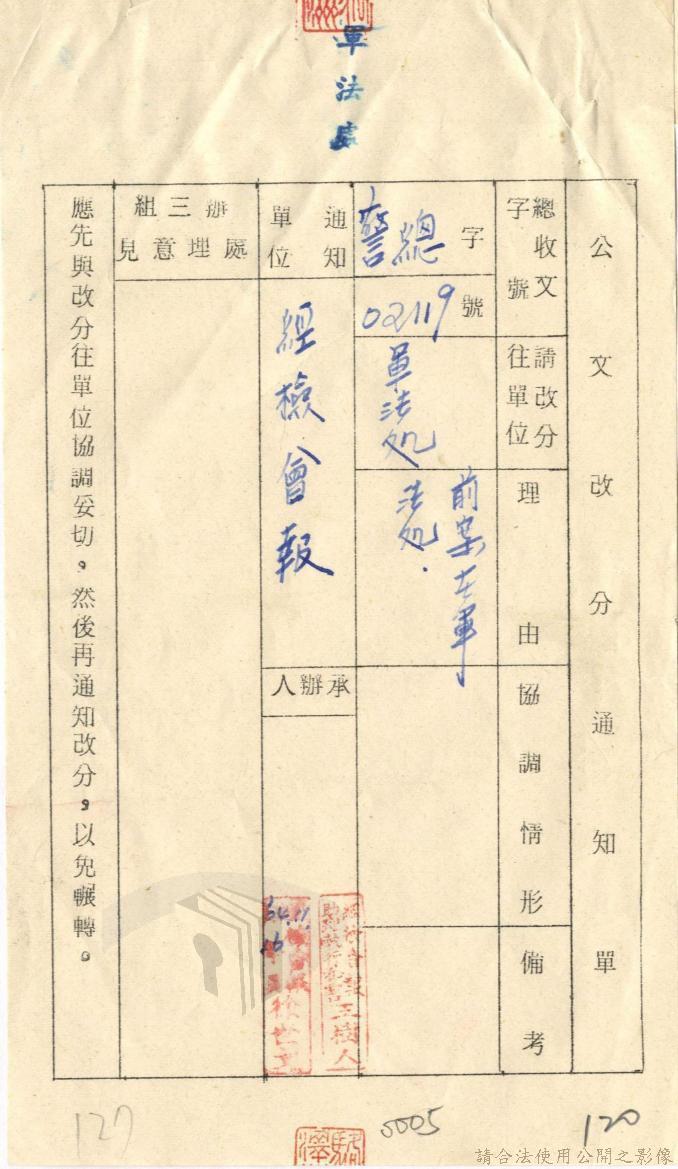 軍法處
公文改分通知單
總收文字號
警總字
02119號
請改分往單位
軍法処
理由
前案在軍法処.
協調情形
備考
通知單位
經檢會報
承辦人
64.11.
王樹人
徐世
辦三組處理意見
應先與改分往單位協調妥切。然後再通知改分，以免輾轉。
127
0005
120
請合法使用公開之影像